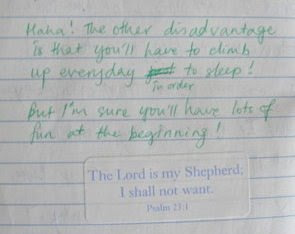 Haha! The other disadvantage
is that you'll have to climb
up everyday to sleep!
in order
But I'm sure you'll have lots of
fun at the beginning!
The Lord is my Shepherd;
I shall not want.
Psalm 23:1